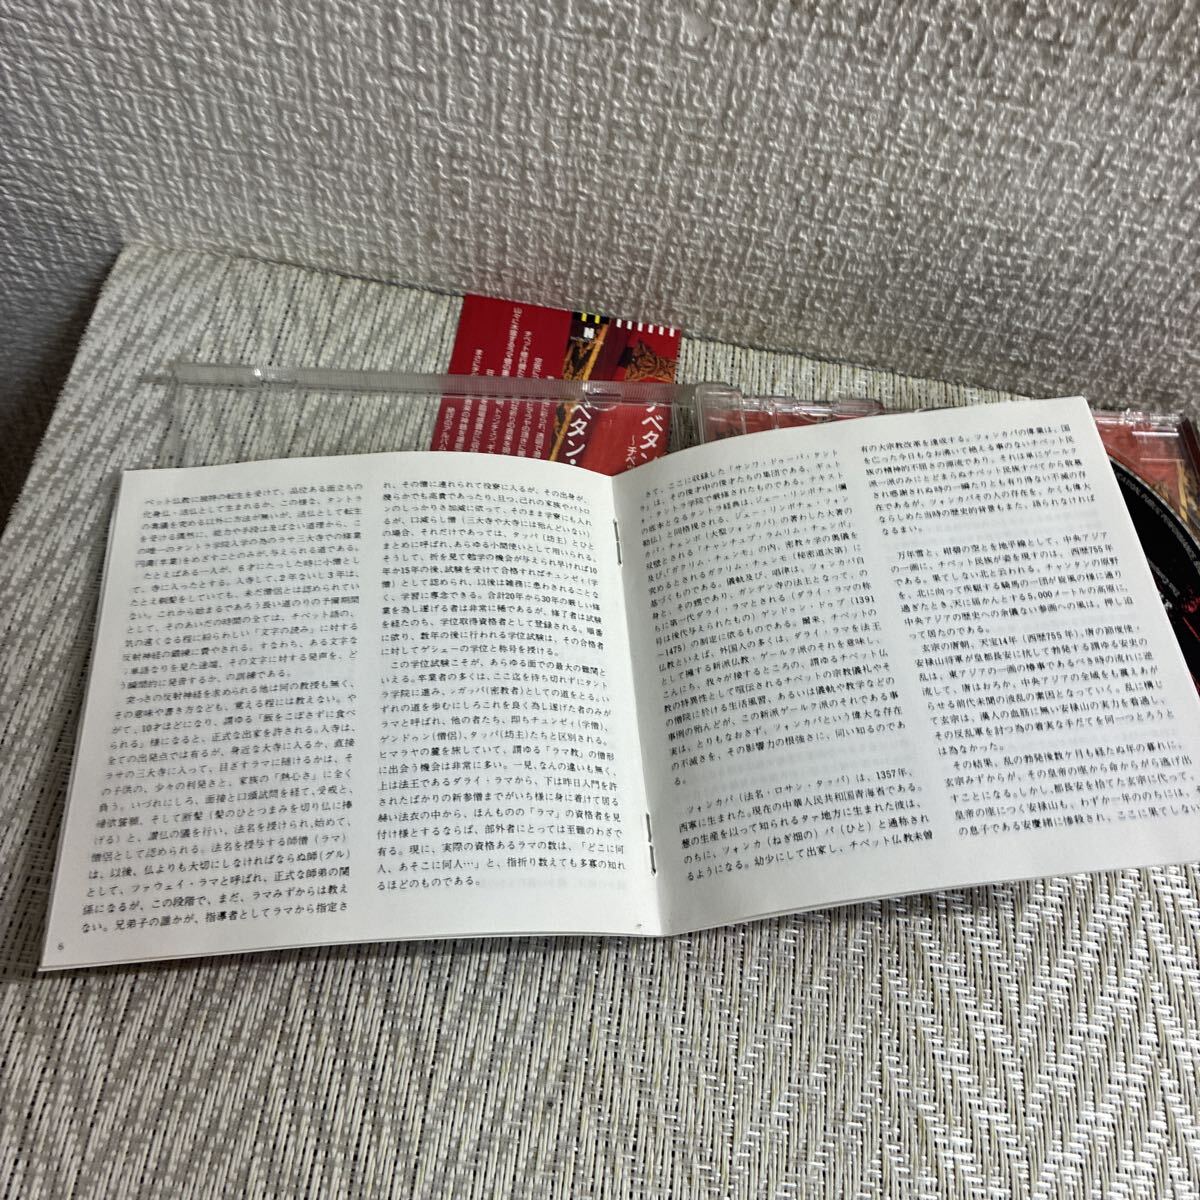 ベット仏教に独特の転生を受けて、品位ある面立ちの
化身仏、活仏として生まれるか、この様な、タントラ
の奥義を究める以外に方法が無いが、活仏として転生
を受ける偶然に、総力や手段は及ばない道理から、こ
の唯一のタントラ学院入学の為のラサ三大寺での修業
円満(卒業)をめざすことのみが、与えられる道である。
たとえばある一人が、6才にたった時に小僧とし
て、寺に入ったとする。入寺して、2年ないし3年は、
たとえ剃髪をしていても、未だ僧侶とは認められてい
ない。これから始まるであろう長い道のりの予備期間
として、そのあいだの時間の全ては、チベット語の、
気の遠くなる程に紛らわしい「文字の読み」に対する
反射神経の鍛練に費やされる。すなわち、ある文字な
り単語なりを見た途端、その文字に対する発声を、ど
う瞬間的に発音するか、の訓練である。
突っさの反射神経を求められる他は何の教授も無く、
その意味や書き方なども、覚える程には教えない。や
がて、10才ほどになり、謂ゆる「飯をこぼさずに食べ
られる」様になると、正式な出家を許される。入寺は、
全ての出発点では有るが、身近な大寺に入るか、直接
ラサの三大寺に入って、目ざすラマに随けるかは、そ
の子供の、少々の利発さと、家族の「熱心さ」に全く
負う。いづれにしろ、面接と口頭試問を経て、受戒と、
袈裟着領、そして断髪(髪のひとつまみを切り仏に捧
げる)と、讃仏の儀を行い、法名を授けられ、始めて、
僧侶として認められる。法名を授与する師僧(ラマ)
は、以後、仏よりも大切にしなければならぬ師(グル)
として、ファウェイ・ラマと呼ばれ、正式な師弟の関
係になるが、この段階で、まだ、ラマみずからは教え
ない。兄弟子の誰かが、指導者としてラマから指定さ
6
れ、その僧に連れられて役寮に入るが、その出身が、
幾らかでも高貴であったり、且つ、己れの家族やパトロ
ンのしっかりさ加減に依って、そのまま学寮にも入れ
るが、口減らし僧(三大寺や大寺には殆んどいない)
の場合、それだけであっては、タッパ(坊主)とひと
まとめに呼ばれ、あらゆる小間使いとして用いられる。
もうして、折を見て勉学の機会が与えられ早ければ10
年か15年の後、試験を受けて合格すればチュンゼィ(学
僧)として認められ、以後は雑務に患わされることな
く、学習に専念できる。合計20年から30年の厳しい修
業を為し遂げる者は非常に稀であるが、修了者は試験
を経たのち、学位取得資格者として登録される。順番
に依り、数年の後に行われる学位試験は、その合格者
に対してゲシューの学位と称号を授ける。
この学位試験こそが、あらゆる面での最大の難関と
いえる。卒業者の多くは、ここ迄を待ち切れずにタント
ラ学院に進み、ンガッパ(密教者)としての道をとる。い
ずれの道を歩むにしろこれを良く為し遂げた者のみが
ラマと呼ばれ、他の者たち、即ちチュンゼィ(学僧)、
ゲンドゥン(僧侶)、タッパ(坊主)たちと区別される。
ヒマラヤの麓を旅していて、謂ゆる「ラマ教」の僧形
に出会う機会は非常に多い。一見、なんの違いも無く、
上は法王であるダライ・ラマから、下は昨日入門を許
されたばかりの新参僧までがいち様に身に着けて居る
緋い法衣の中から、ほんものの「ラマ」の資格者を見
付け様とするならば、部外者にとっては至難のわざで
有る。現に、実際の資格あるラマの数は、「どこに何
人、あそこに何人…」と、指折り数えても多寡の知れ
るほどのものである。
さて、ここに収録した「サンワ・ドゥーパ・タント
ラ」は、その俊才中の俊才たちの集団である、ギュト
ォ・タントラ学院で厳修されたものである。テキスト
の底本となるタントラ経典は、ジェー・リンポチェ(厳
勅仏)と同格視される、ジェー・リンポチェ・ツォン
カパ・チェンポ(大聖ツォンカパ)の著わした大著の
双璧とされる「チャンチュブ・ラムリム・チェンポ」
及び、「ガクリム・チェンモ」の内、密教大学の奥儀を
究めるとされるガクリム・チェンモ(秘密道次第)に
基づくものである。儀軌及び、唱律は、ツォンカパ自
身と、その甥であり、ガンデン寺の法主となって、の
ちに第一代ダライ・ラマとされる(ダライ・ラマの称
号は後代与えられたもの)ゲンドゥン・ドゥプ(1391
—1475)の制定に依るものである。爾来、チベットの
仏教といえば、外国人の多くは、ダライ・ラマを法王
として擁する新派仏教・ゲールク派のそれを意味し、
こんにち、我々が接するところの、謂ゆるチベット仏
教の特異性として喧伝されるチベットの宗教儀礼やそ
の僧院に於ける生活風習、あるいは儀軌や教学などの
事例の殆んどが、この新派ゲールク派のそれである事
実は、とりもなおさず、ツォンカパという偉大な存在
の不滅さを、その影響力の根強さに、伺い知るのであ
る。
ツォンカパ(法名・ロサン・タッパ)は、1357年、
西寧に生まれた。現在の中華人民共和国青海省である。
葱の生産を以って知られるタァ地方に生まれた彼は、
のちに、ツォンカ(ねぎ畑の)パ(ひと)と通称され
るようになる。幼少にして出家し、チベット仏教未曽
有の大宗教改革を達成する。ツォンカパの尊業は、国
を亡った今日もなお湧いて絶える事のないチベット民
族の精神的不屈さの源流であり、それは単にゲールク
派一派のみにとどまらぬチベット民族すべてから敬慕
され感謝されぬ時の一瞬たりとも有り得ない不滅の存
在であるが、ツォンカパその人の存在を、かくも偉大
ならしめた当時の歴史的背景もまた、語られなければ
ならない。
万年雪と、紺碧の空とを地平線として、中央アジア
の一画に、チベット民族が姿を現すのは、西暦755年
である。果てしない北と云われる、チャンタンの原野
を、北に向って疾駆する騎馬の一団が旋風の様に通り
過ぎたとき、天に届かんとする5,000メートルの高原に、
中央アジアの歴史への余儀ない参画への風は、押し迫
って居たのである。
玄宗の唐朝、天宝14年(西暦755年)、唐の節度使・
安禄山将軍が皇都長安に抗して勃発する謂ゆる安史の
乱は、東アジアの一画の椿事であるべき時の流れに逆
流して、唐はおろか、中央アジアの全域をも襲えあが
らせる前代未聞の造乱の素因となっていく。乱に慄じ
て玄宗は、漢人の血筋に無い安禄山の実力を看過し、
その反乱軍を討つ為の着実な手だてを何一つとろうと
は為なかった。
その結果、乱の勃発後数ケ月も経たぬ年の暮れに、
玄宗みずからが、その皇帝の座から命からがら逃げ出
すことになる。しかし、都長安を捨てた玄宗に代って、
皇帝の座につく安禄山も、わずか一年ののちには、そ
の息子である安慶緒に惨殺され、ここに果てしな
N
ベタン・